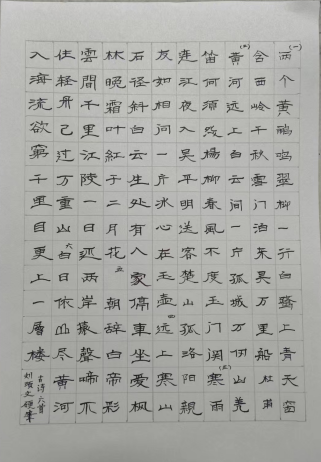 (一)两个黄鹂鸣翠柳一行白鹭上青天窗
含西岭千秋雪门泊东吴万里船 杜甫
(二)黄河远上白云间一片孤城万仞山羌
笛何须怨楊柳春風不度玉门関(三)寒雨
连江夜入吴平明送客楚山孤洛阳親
友如相问一片冰心在玉壶(四)远上寒山
石径斜白云生处有人家停車坐爱枫
林晚霜叶红于二月花五朝辞白帝彩
雲間千里江陵一日还两岸猿聲啼不
住轻舟已过万重山六白日依山尽黄河
入海流欲窮千里目更上一層楼
古诗六首